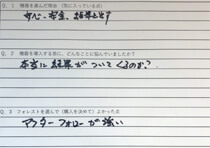 Q. 1 機器を選んだ理由（気に入っている点）
安心、安全、結果を出す
Q. 2 機器を導入する前に、どんなことに悩んでいましたか？
本当に結果がついてくるのか？
Q. 3 フォレストを選んで（購入を決めて）よかった点
アフターフォローが強い